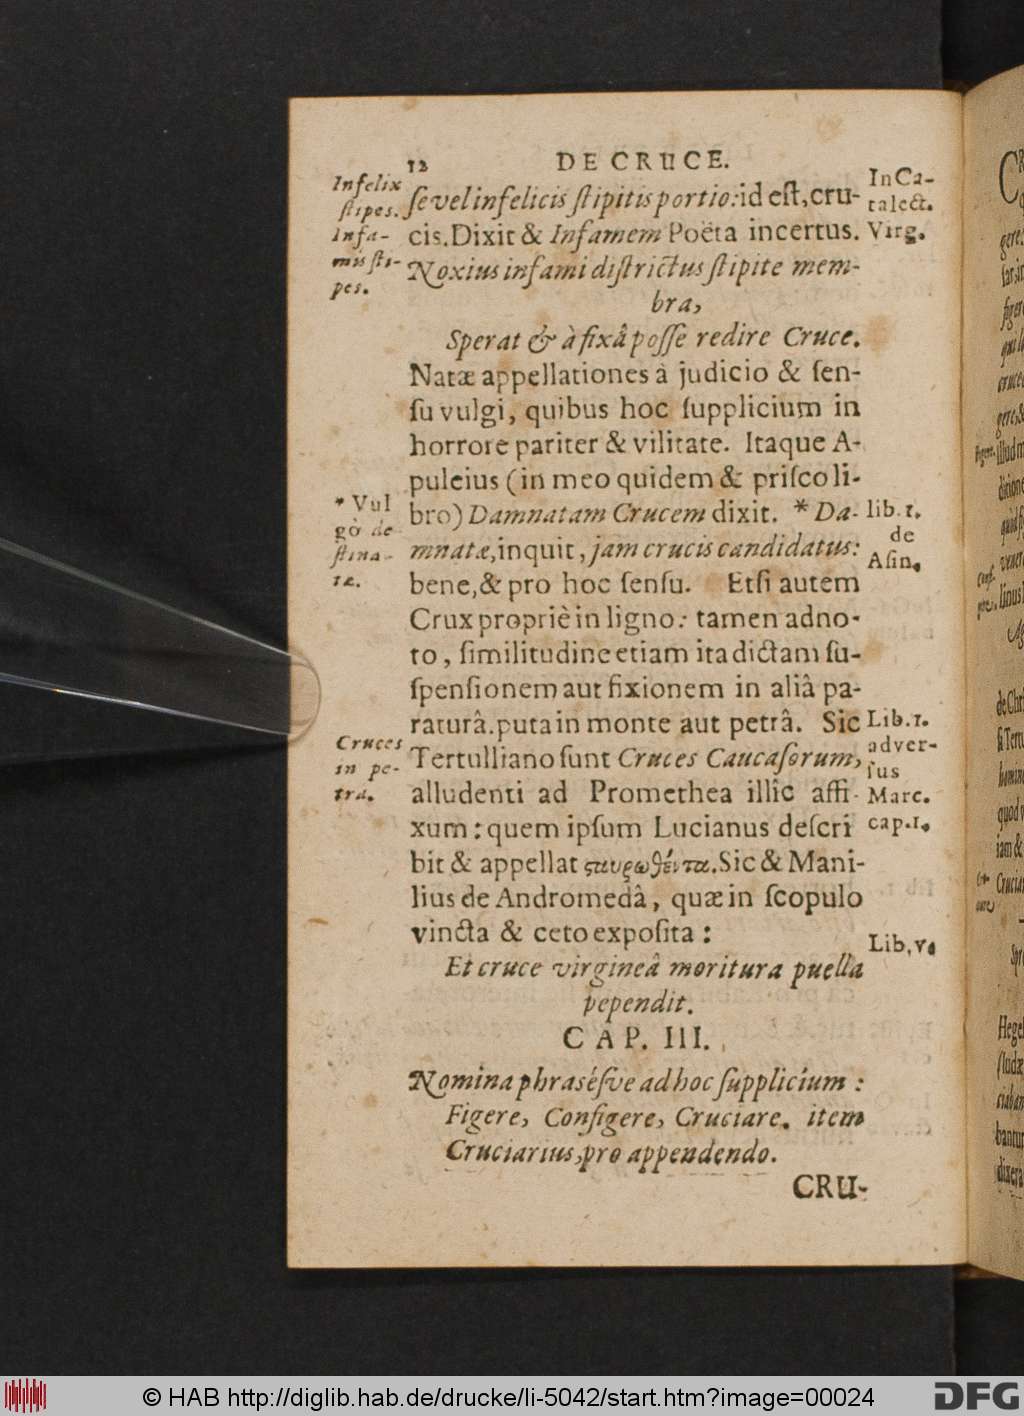 12 DE CRUCE.
Infelix
stipes.
Infa-
mis sti-
pes.
se vel infelicis stipitis portio: id est, cru-
cis. Dixit & Infamem Poëta incertus.
In Ca-
talect.
Virg.
Noxius infami districtus stipite mem-
bra,
Sperat & à fixâ posse redire Cruce.
Natæ appellationes à judicio & sen-
su vulgi, quibus hoc supplicium in
horrore pariter & vilitate. Itaque A-
puleius (in meo quidem & prisco li-
bro) Damnatam Crucem dixit. * Da-
* Vul
gò de-
stina-
tæ.
lib. 1.
de
Asin.
mnatæ, inquit, jam crucis candidatus:
bene, & pro hoc sensu. Etsi autem
Crux propriè in ligno: tamen adno-
to, similitudine etiam ita dictam su-
spensionem aut fixionem in aliâ pa-
raturâ. puta in monte aut petrâ. Sic
Cruces
in pe-
tra.
Lib. 1.
adver-
sus
Marc.
cap. 1.
Tertulliano sunt Cruces Caucasorum,
alludenti ad Promethea illîc affi-
xum: quem ipsum Lucianus descri
bit & appellat ϛαυρωθέντα. Sic & Mani-
lius de Andromedâ, quæ in scopulo
vincta & ceto exposita:
Lib, v.
Et cruce virgineâ moritura puella
pependit.
CAP. III.
Nomina phrasésve ad hoc supplicium:
Figere, Configere, Cruciare. item
Cruciarius, pro appendendo.
CRU-
© HAB http://diglib.hab.de/drucke/li-5042/start.htm?image=00024
DFG